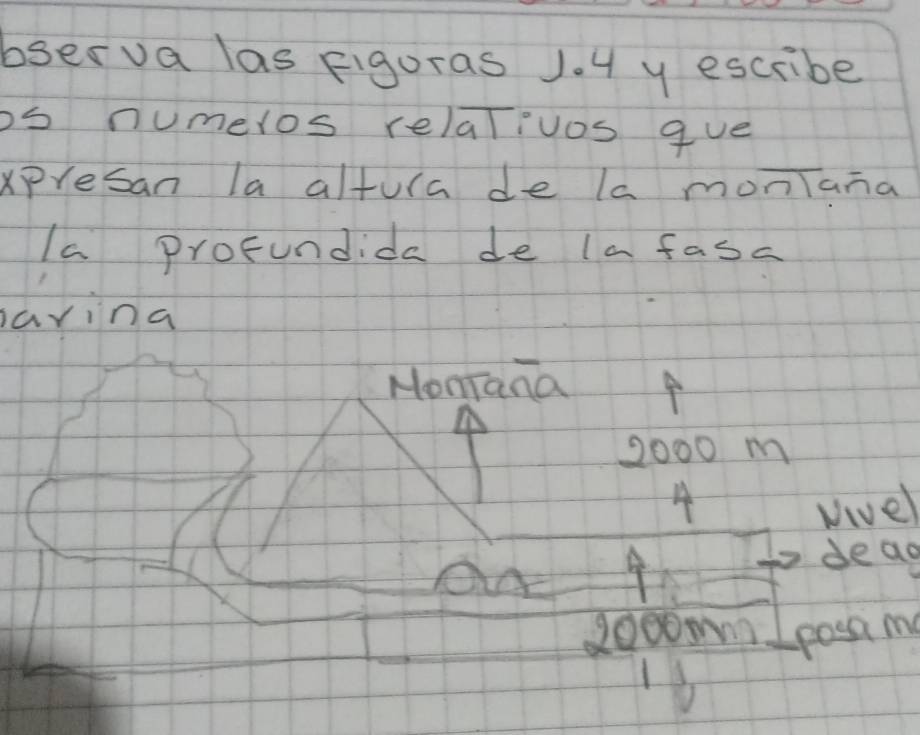 bserva las Figuras 1.4 y escribe
os numeros relativos que
xpresan la altura de la montaña
la profundida de la fasa
arina
Montaña
2000 m
Nivel
de ag
2000mm
posa ma